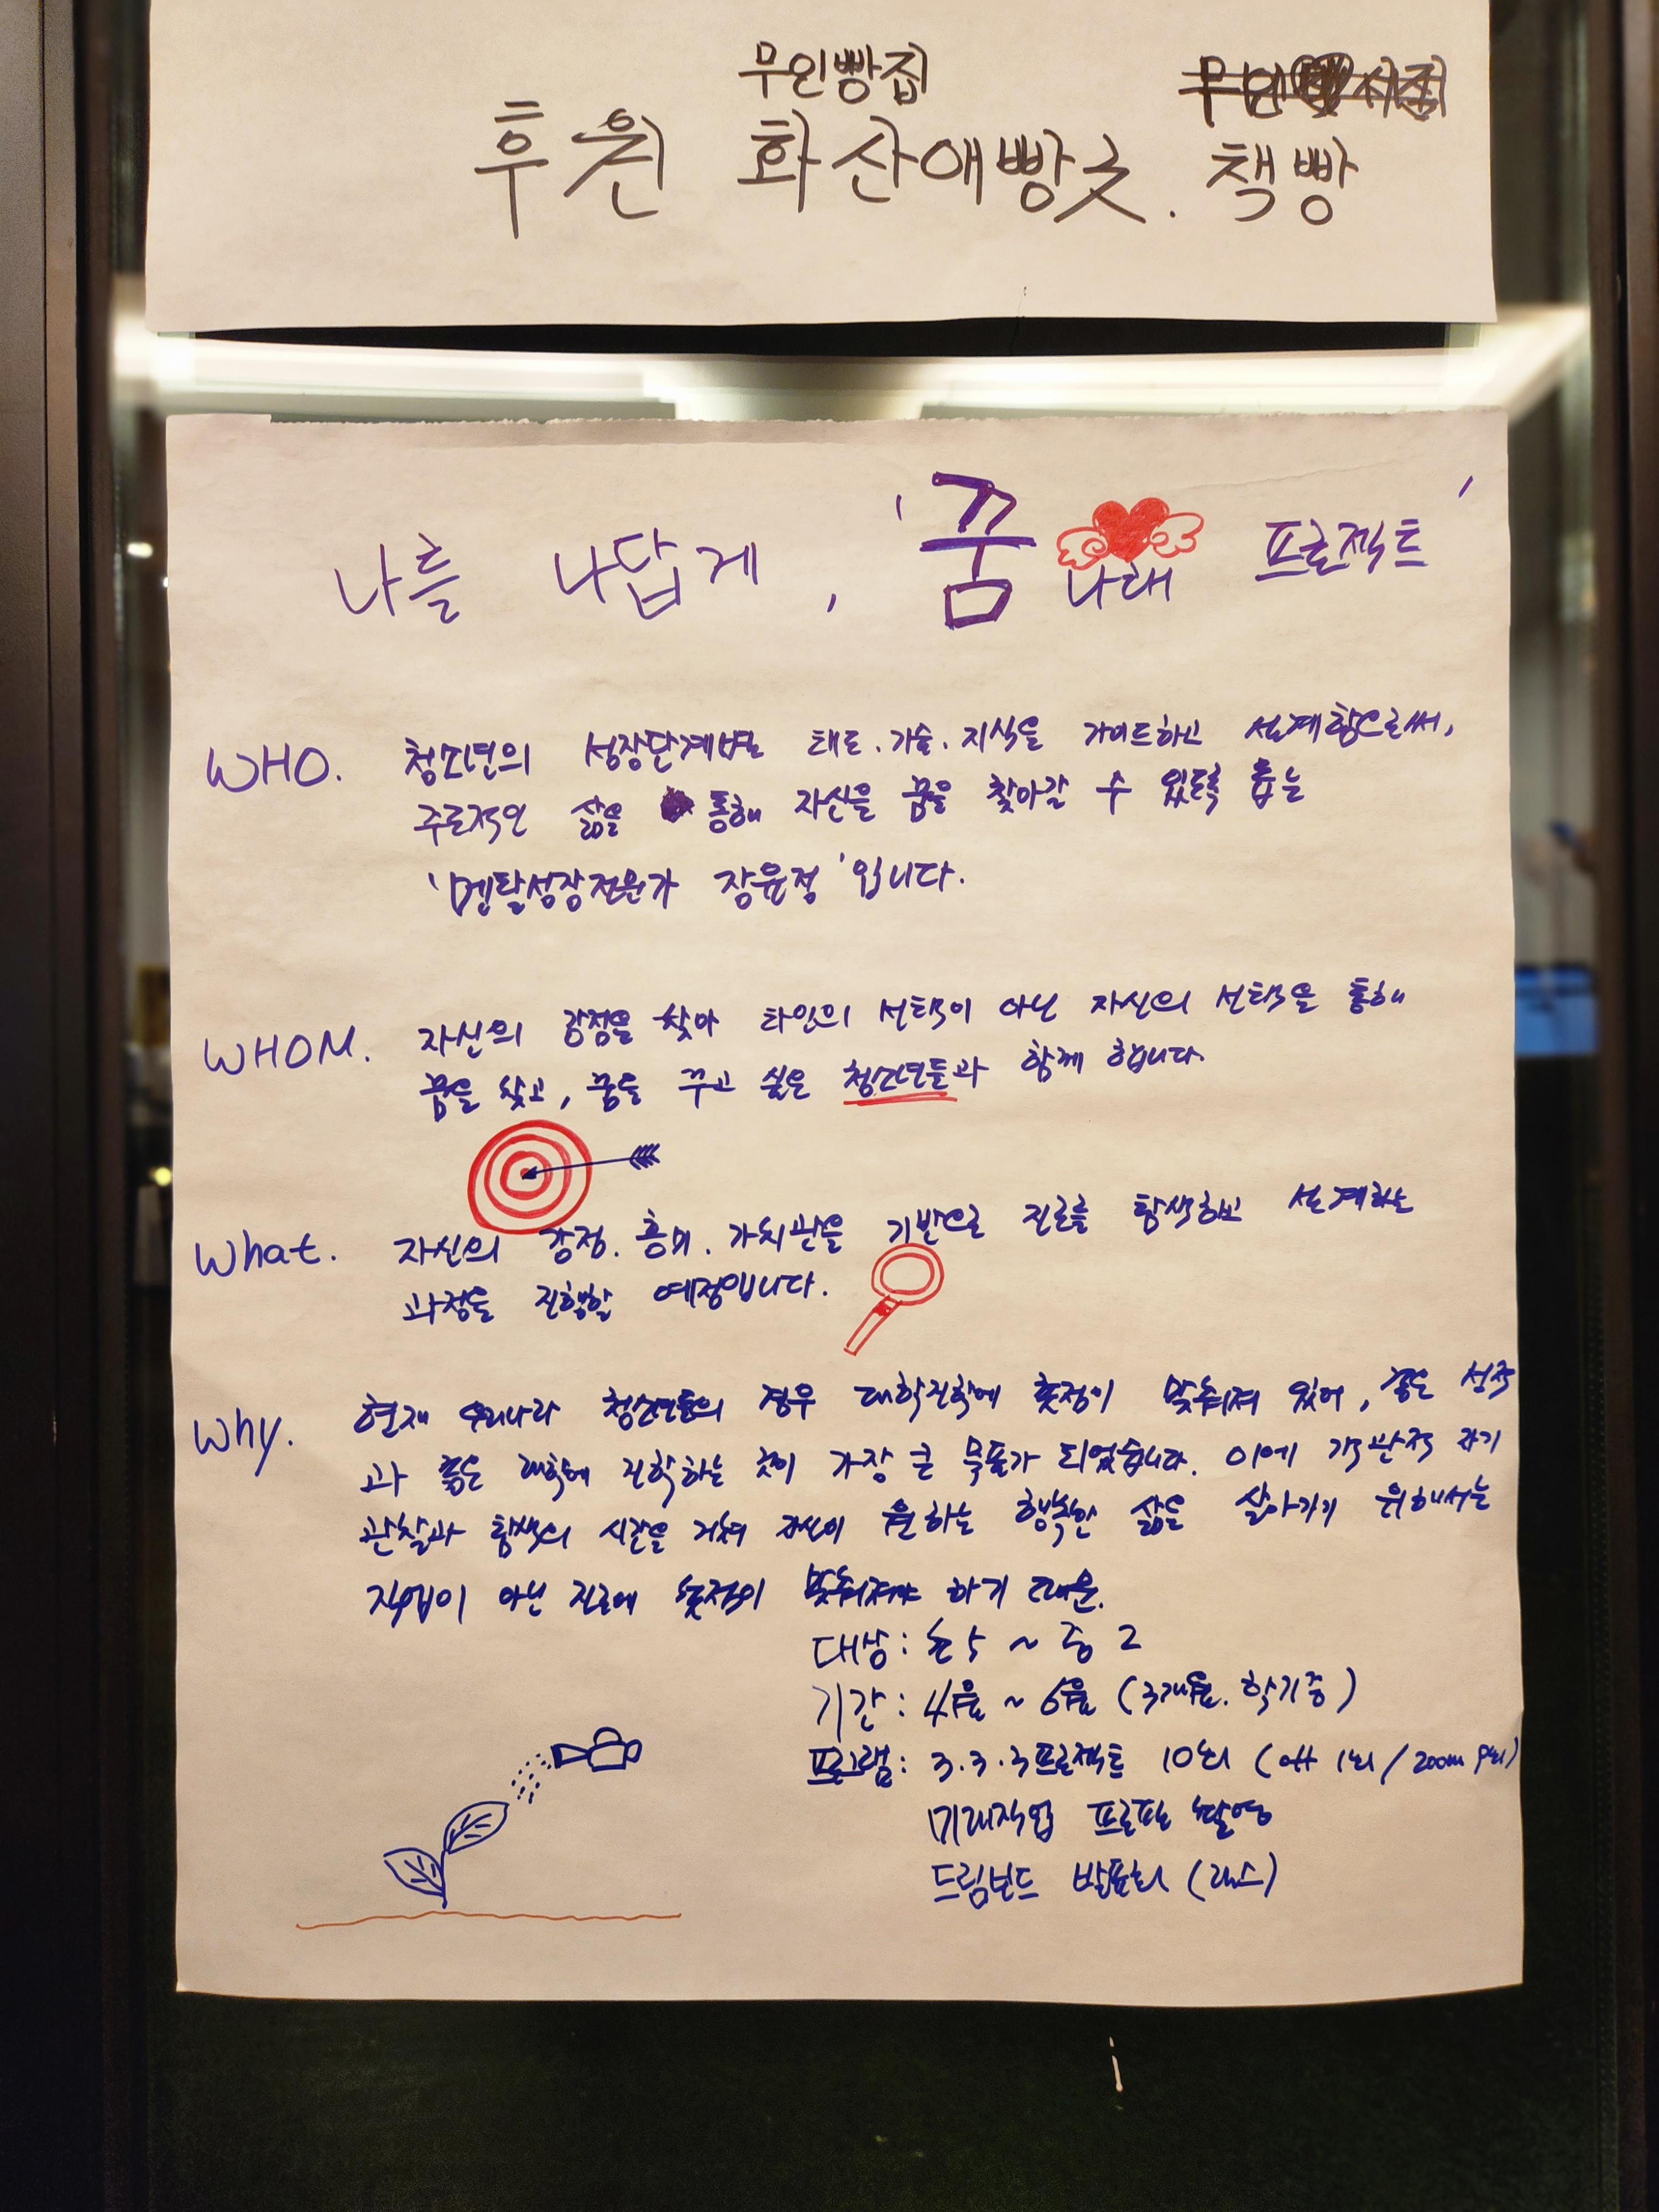 무인빵집
후원 화산애빵굿. 책빵
나를 나답게, '꿈나래 프로젝트'
WHO. 청소년의 성장단계별 태도.기술.지식을 가이드하고 설계함으로써,
주도적인 삶을 통해 자신을 꿈을 찾아갈 수 있도록 돕는
'멘탈성장전문가 장윤정'입니다.
WHOM. 자신의 강점을 찾아 타인의 선택이 아닌 자신의 선택을 통해
꿈을 찾고, 꿈을 꾸고 싶은 청소년들과 함께 합니다.
What. 자신의 강점.흥미.가치관을 기반으로 진로를 탐색하고 설계하는
과정을 진행할 예정입니다.
Why. 현재 우리나라 청소년들의 경우 대학진학에 초점이 맞춰져 있어, 좋은 성적
과 좋은 대학에 진학하는 것이 가장 큰 목표가 되었습니다. 이에 객관적 자기
관찰과 탐색의 시간을 거쳐 자신이 원하는 행복한 삶을 살아가기 위해서는
직업이 아닌 진로에 초점이 맞춰져야 하기 때문.
대상: 초5 ~ 중2
기간: 4월 ~ 6월 (3개월. 학기중)
프로그램: 3.3.3프로젝트 10회 (off 1회/zoom 9회)
미래직업 프로필 촬영
드림보드 발표회